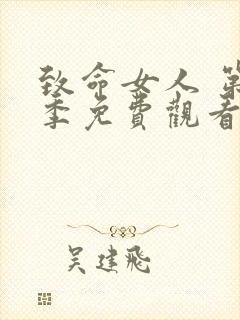 致命女人 第
季免費觀看
吴建飛